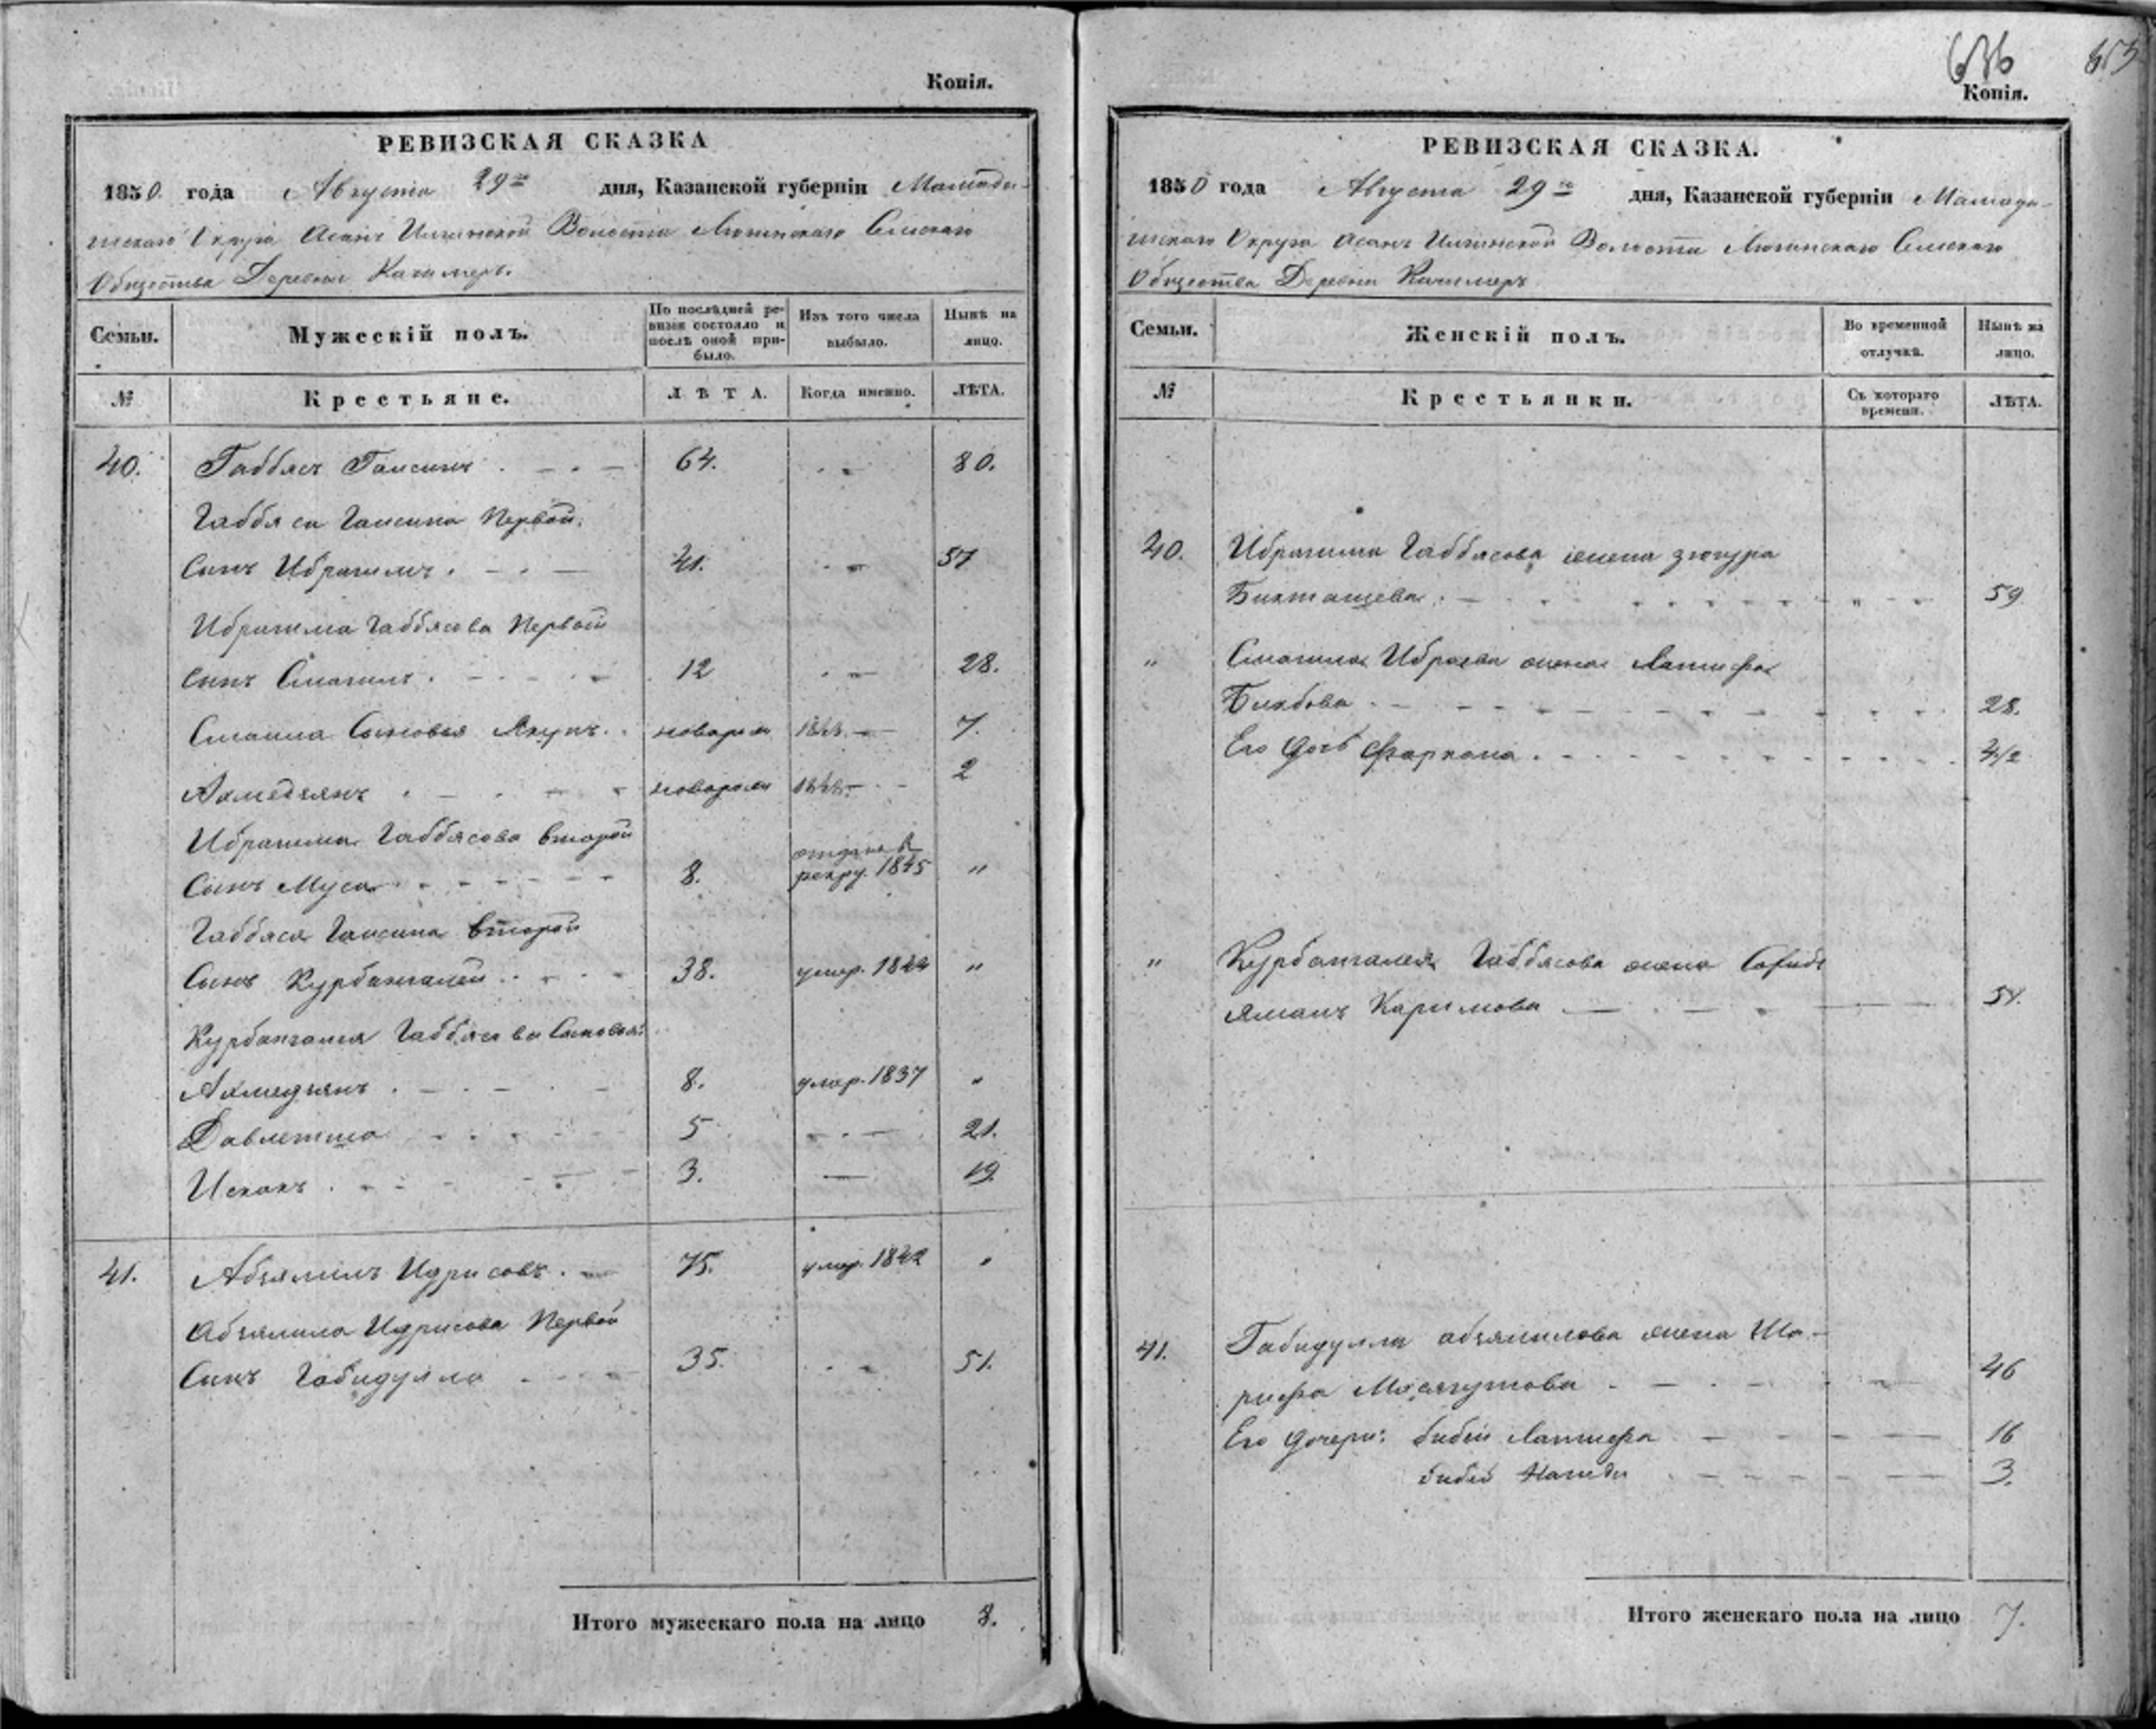 Копія.
РЕВИЗСКАЯ СКАЗКА
1850. года Августа 29го дня, Казанской губерніи Мамады-
шскаго Округа Асанъ Илгинской Волости Люгинскаго Сельскаго
Общества Деревни Качимеръ.
Семьи.
Мужескій полъ.
По послѣдней ре-
визіи состояло и
послѣ оной при-
было.
Изъ того числа
выбыло.
Нынѣ на
лицо.
№
Крестьяне.
ЛѢТА.
Когда именно.
ЛѢТА.
40. Габбясъ Гаисинъ 64. 80.
Габбяса Гаисина Первой
Сынъ Ибрагимъ. 41. 57
Ибрагима Габбясова Первой
сынъ Смагилъ. 12 28.
Смагила Сыновья Якупъ. новорож 7.
Ахмедзянъ новорож 2
Ибрагима Габбясова второй
Сынъ Муса 8. отданъ в рекру. 1845 "
Габбяса Гаисина второй
Сынъ Курбангалей 38. умер. 1844 "
Курбангалея Габбясова Сыновья:
Ахмедзянъ. 8. умер. 1837 "
Давлетша 5 21.
Исхакъ. 3. 19.
41. Абзялилъ Идрисовъ. 75. умер. 1842 "
Абзялила Идрисова Первой
Сынъ Габидулла 35. 51.
Итого мужескаго пола на лицо 8.
636
Копія.
РЕВИЗСКАЯ СКАЗКА.
1850 года Августа 29го дня, Казанской губерніи Мамады-
шскаго Округа Асанъ Илгинской Волости Люгинскаго Сельскаго
Общества Деревни Качимеръ
Семьи.
Женскій полъ.
Во временной
отлучкѣ.
Нынѣ на
лицо.
№
Крестьянки.
Съ котораго
времени.
ЛѢТА.
40. Ибрагима Габбясова жена Зюгура
Бикташева. 59
" Смагила Ибраева жена Латифа
Бикбова 28.
Его дочь Фархана. 4/2
" Курбангалея Габбясова жена
Каримова 54.
41. Габидуллы абзялилова жена Ша-
рифа Мясягутова 46
Его дочери: бибей Латифа 16
бибей 3.
Итого женскаго пола на лицо 7.